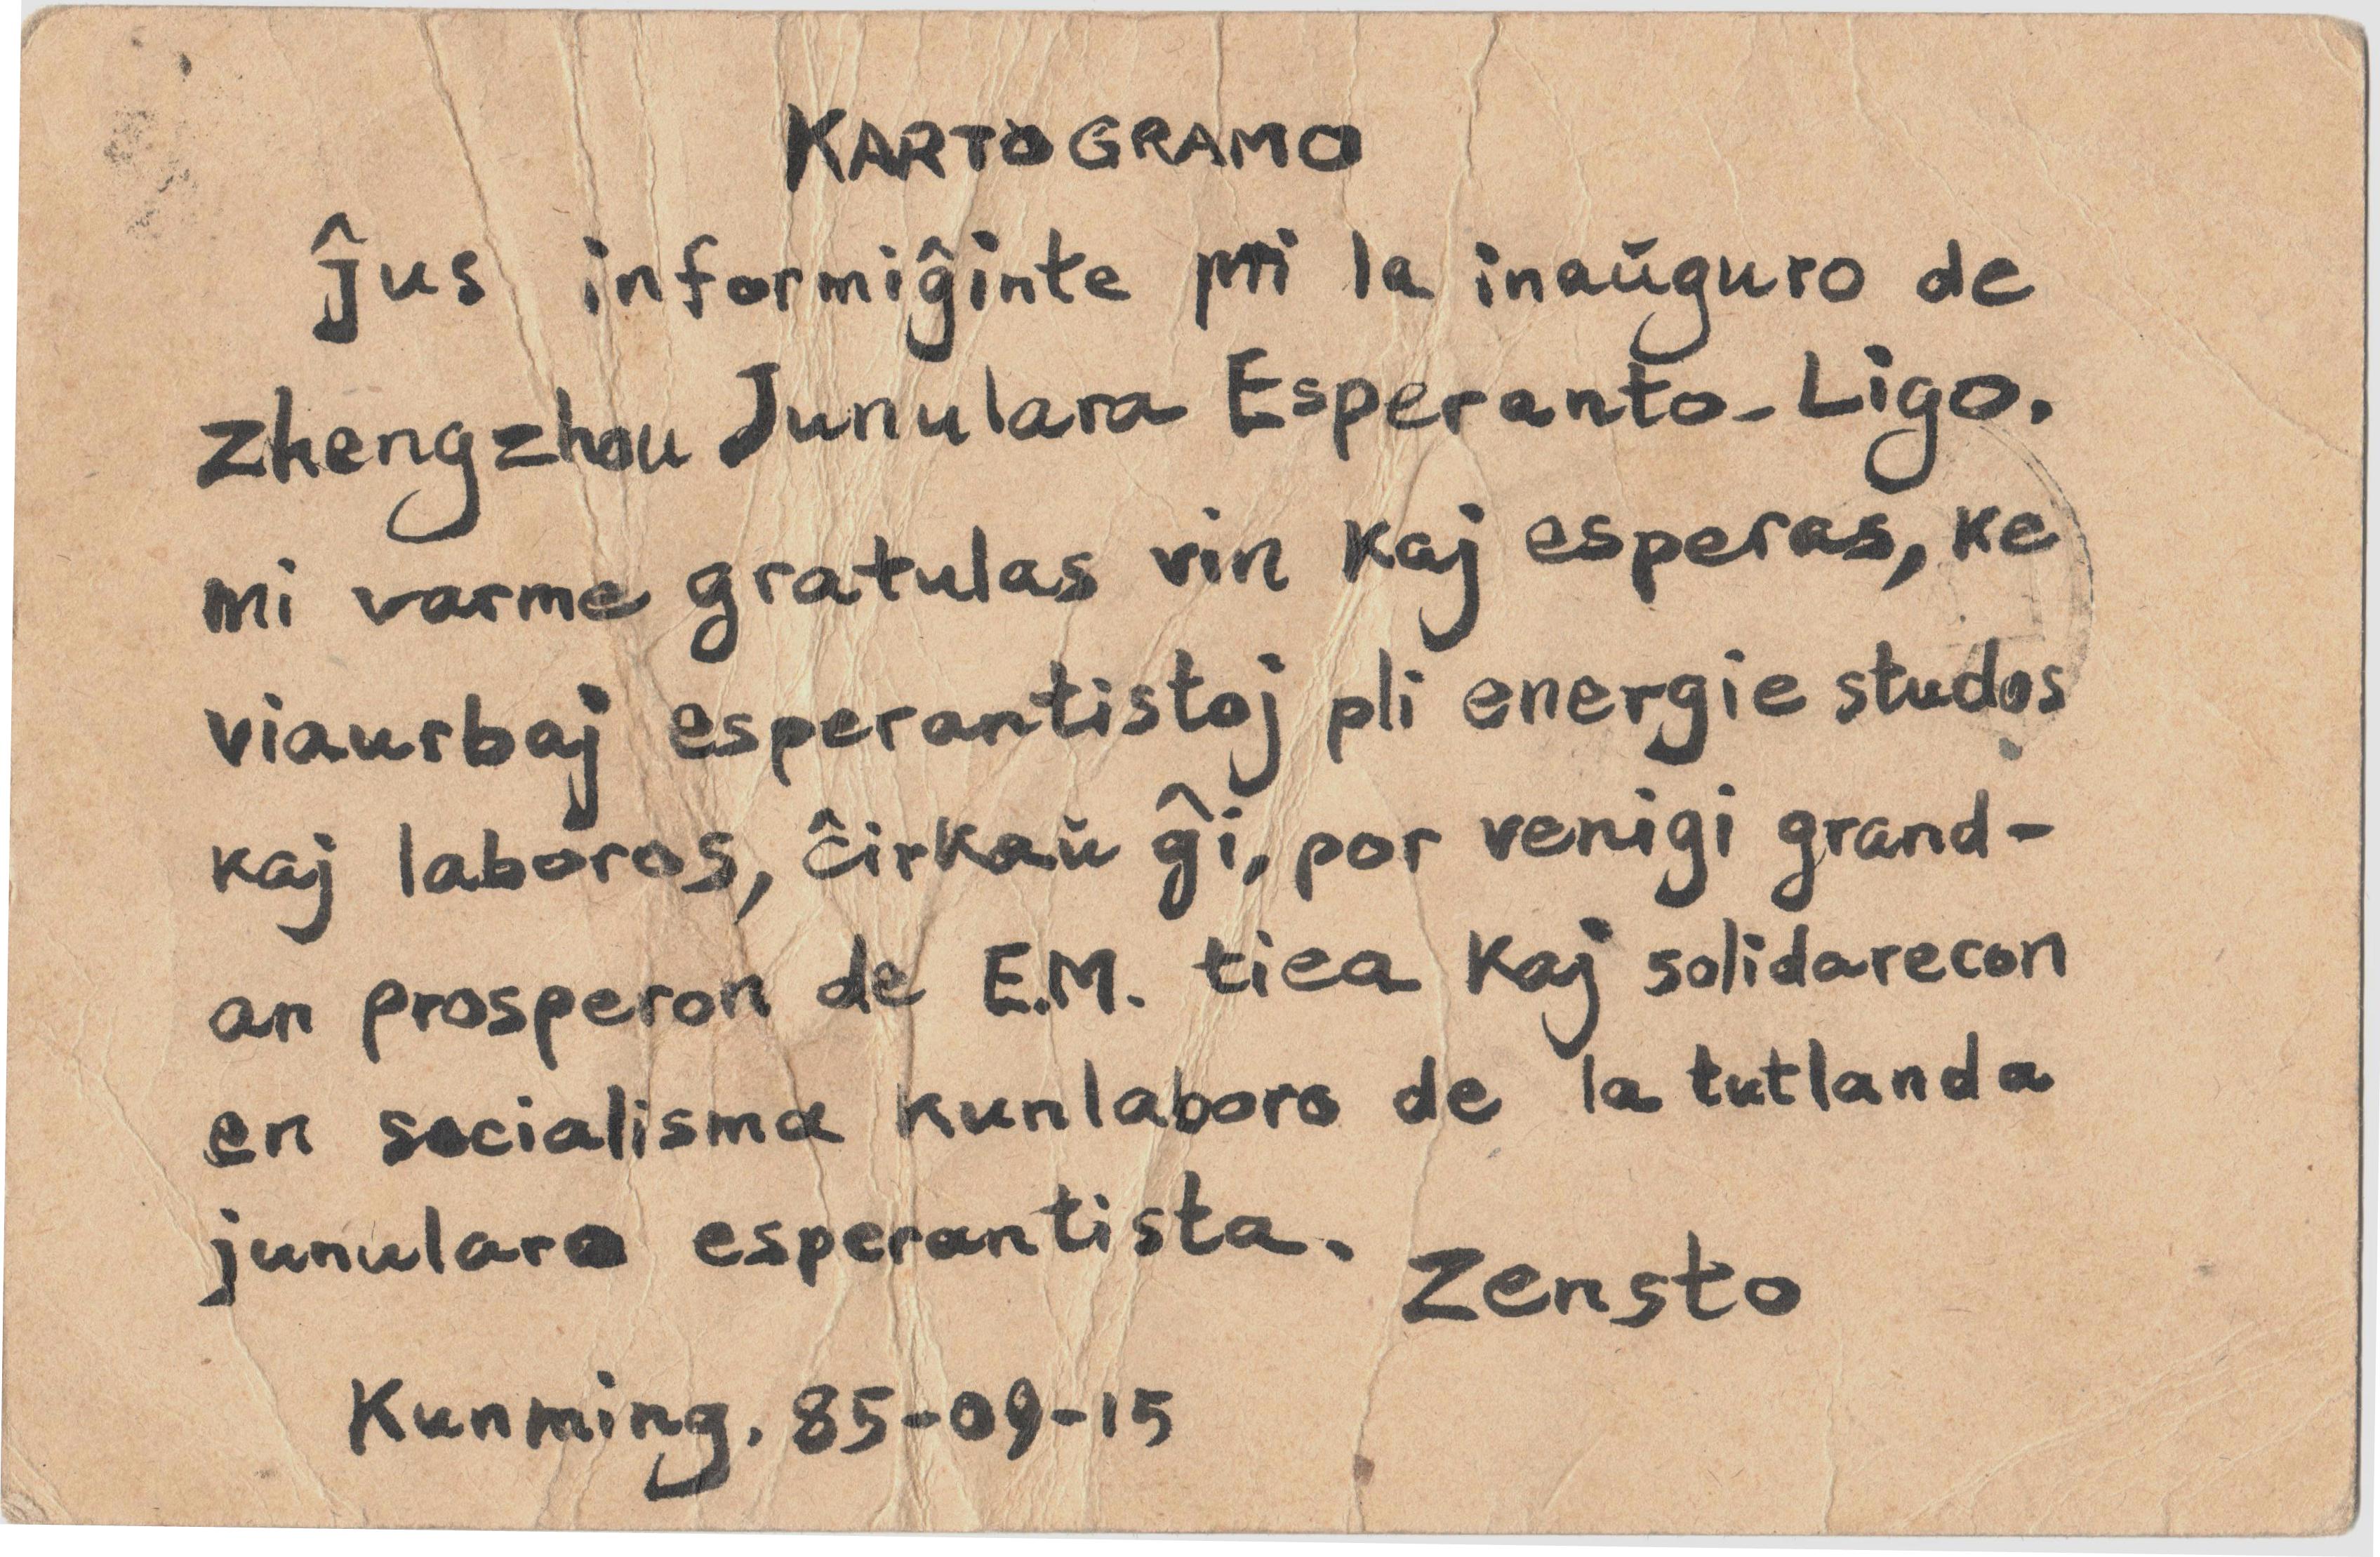 KARTOGRAMO
Ĵus informiĝinte pri la inaŭguro de
Zhengzhou Junulara Esperanto-Ligo.
mi varme gratulas vin kaj esperas, ke
viaurbaj esperantistoj pli energie studos
kaj laboros, ĉirkaŭ ĝi, por venigi grand-
an prosperon de E.M. tiea kaj solidarecon
en socialisma kunlaboro de la tutlanda
junularo esperantista.
Zensto
Kunming. 85-09-15